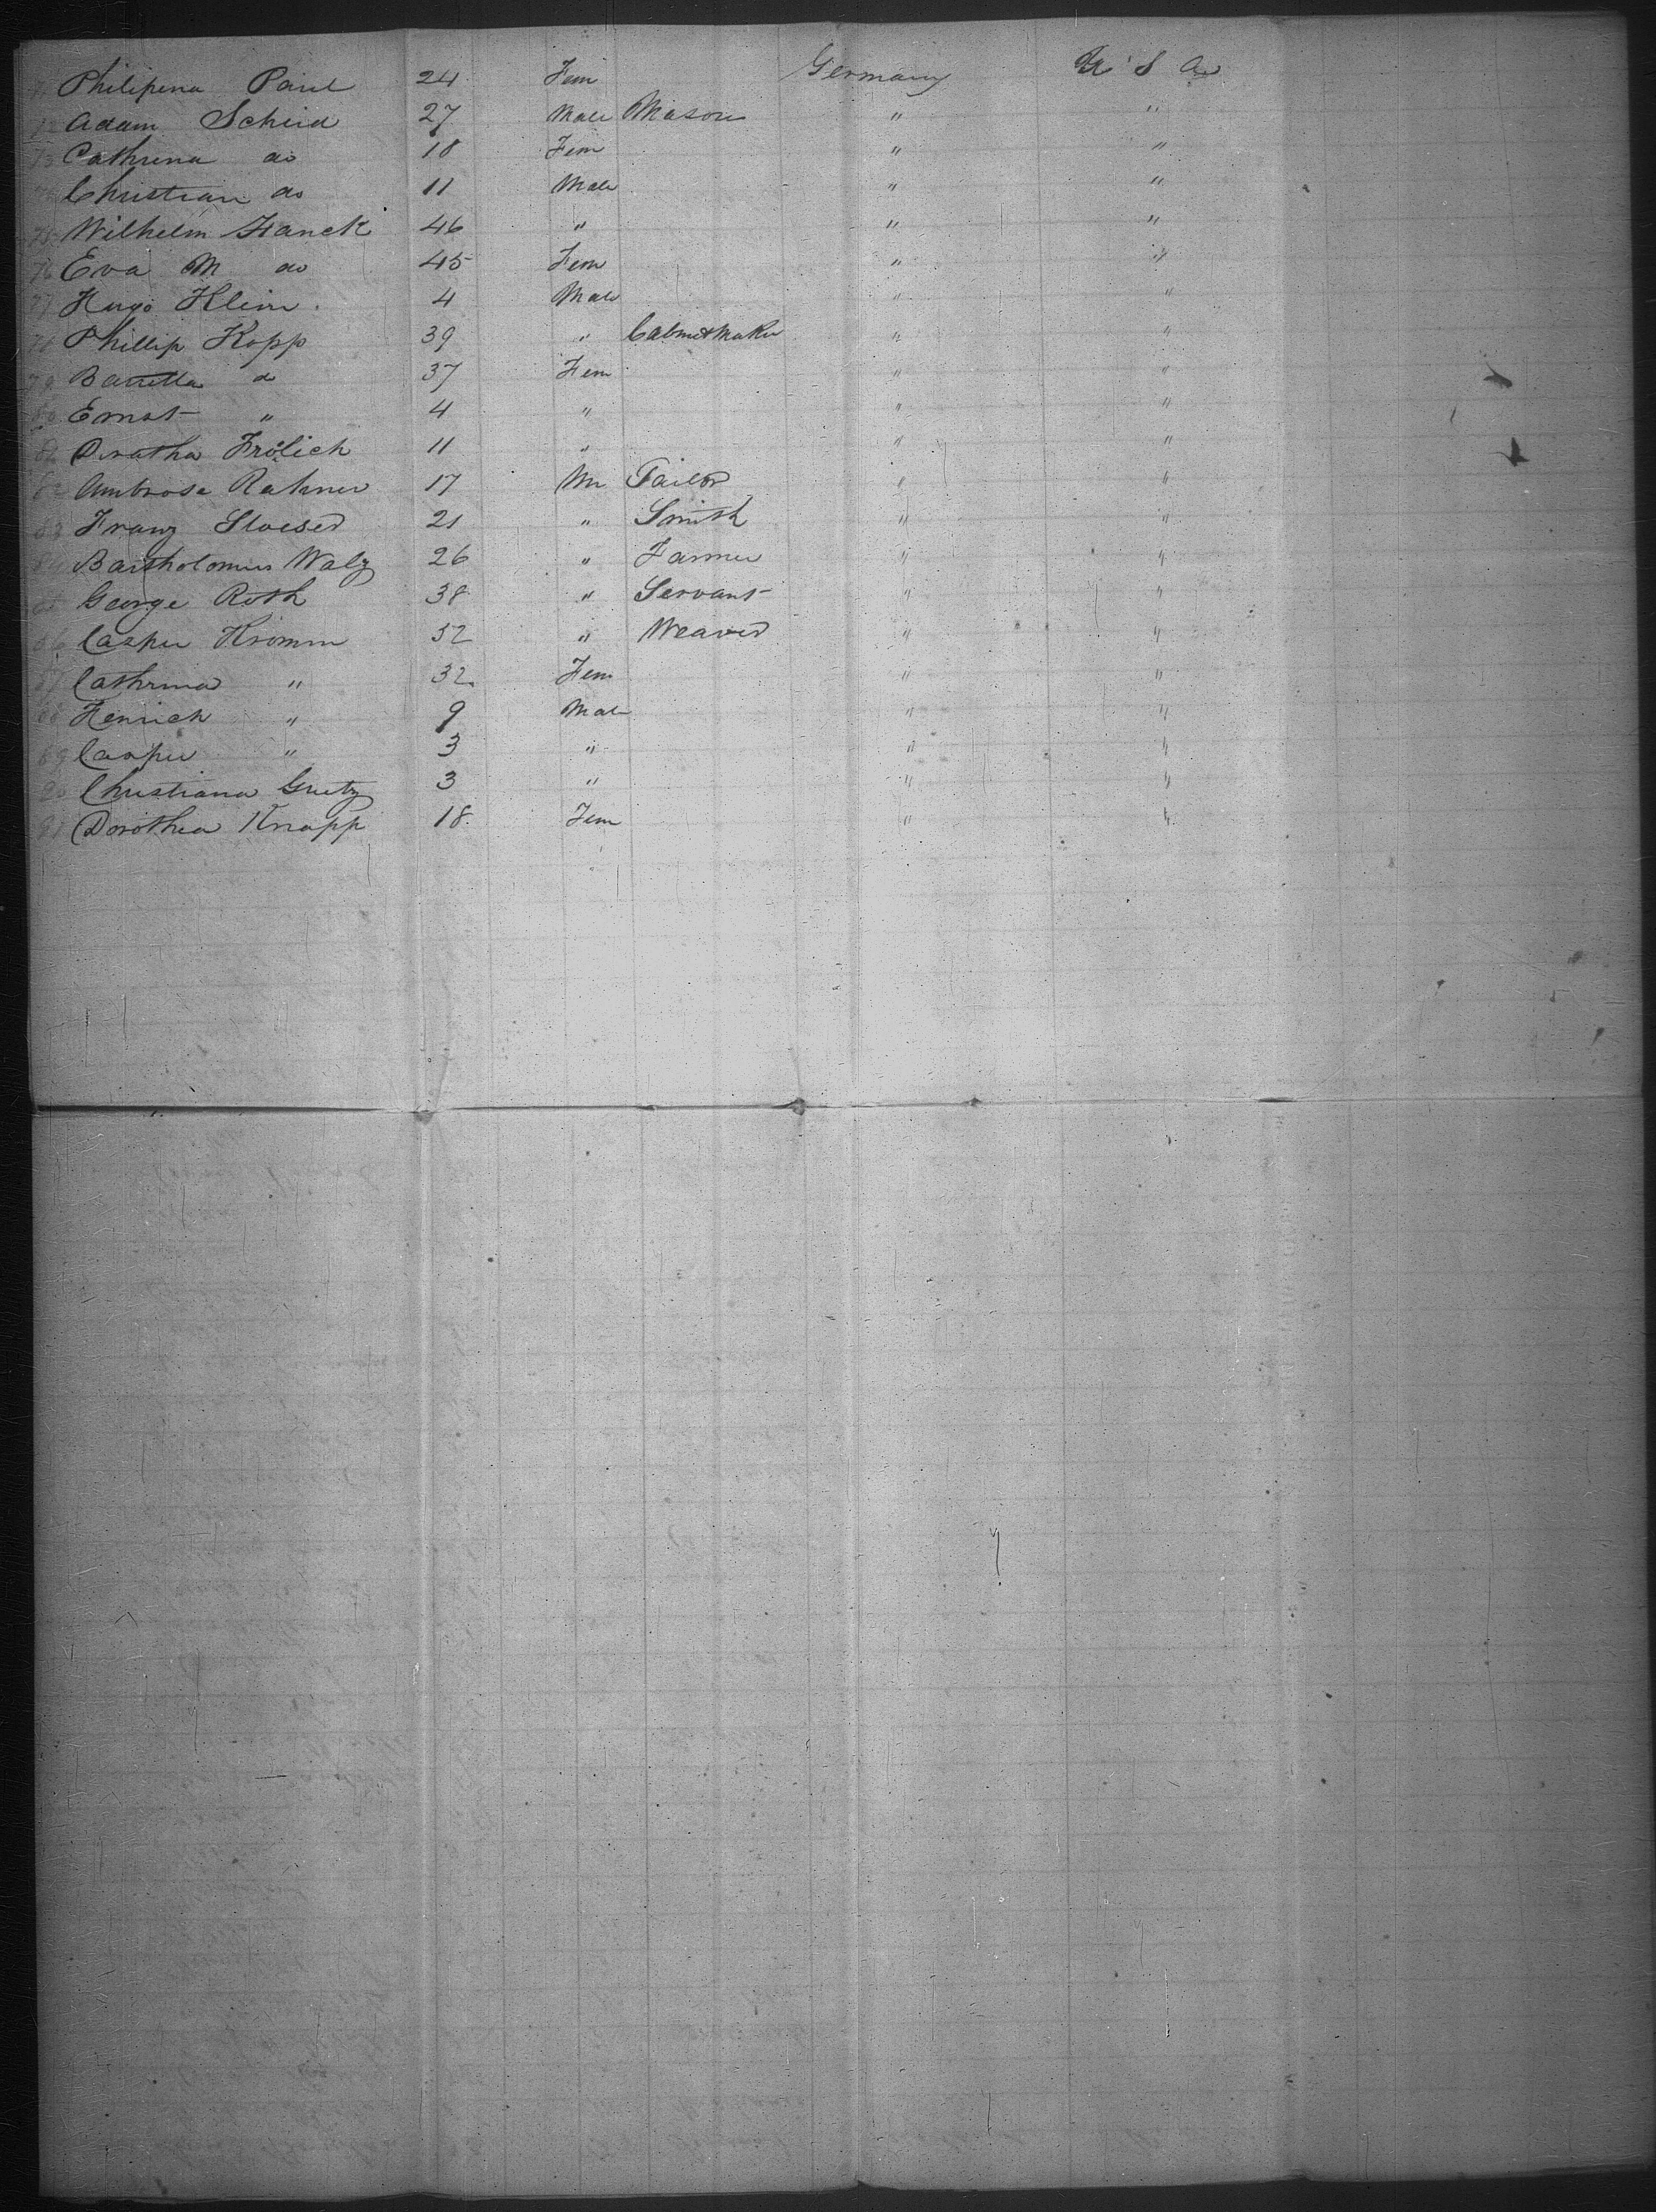 Philipena Paul 24 Fem Germany U S A
Adam Scheid 27 Male Mason " "
73 Cathrena do 18 Fem " "
Christian do 11 Male " "
75 Wilhelm Hanck 46 " " "
76 Eva M do 45 Fem " "
77 Hugo Klein 4 Male " "
78 Phillip Kopp 39 " Cabinetmaker " "
79 Barretta do 37 Fem " "
80 Ernst " 4 " " "
Doratha Frölich 11 " " "
82 Ambrose Rahner 17 M Tailor " "
83 Franz Stoeser 21 " Smith " "
84 Bartholomus Walz 26 " Farmer " "
85 George Roth 38 " Servant " "
86 Casper Kromm 32 " Weaver " "
87 Cathrina " 32 Fem " "
88 Henrich " 9 Male " "
89 Casper " 3 " " "
90 Christiana Gretz 3 " " "
91 Dorothea Knapp 18 Fem " "